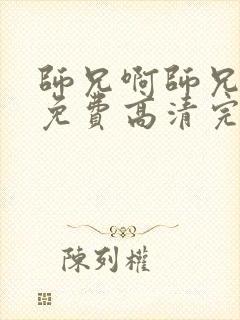 師兄啊師兄
免費高清完
陳列權